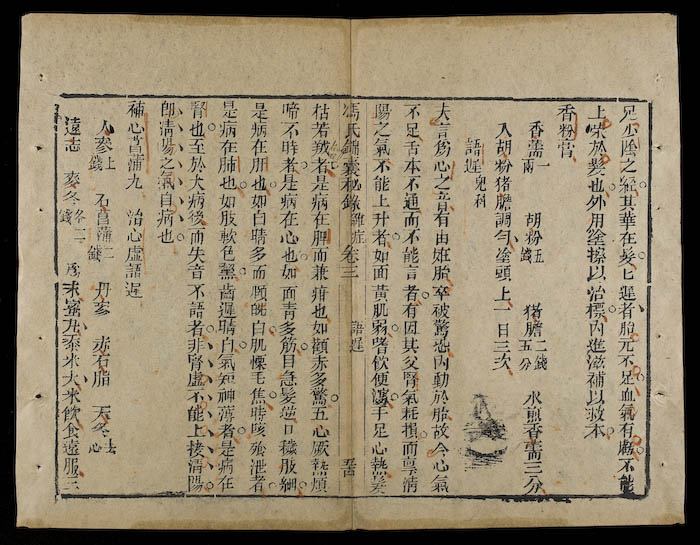 足少陰之經其華在髮匕遲者胎元不足血氣有虧不能
上榮於髮也外用塗搽以治標內進滋補以救本
香粉膏
香薷一兩 胡粉五錢 猪膽二錢五分 水煎香薷三分
入胡粉猪膽調勻塗頭上一日三次
語遲兒科
夫言爲心之音有由姙胎卒被驚怖內動於胎故令心氣
不足舌本不通而不能言者有因其父腎氣耗損而禀清
陽之氣不能上升者如面黃肌弱嗜飲便瀉手足心熱髮
馮氏錦囊秘錄 雜症 卷三 語遲
枯若疏者是病在脾而兼疳也如顴赤多驚五心厥熱煩
啼不時者是病在心也如面青多筋目急髮逆日穢股細
是病在肝也如白睛多而顱胱白肌慄毛焦時咳殗泄者
是病在肺也如肢軟色黧齒遲睛白氣短神薄者是病在
腎也至於大病後而失音不語者非腎虛不能上接清陽
卽清陽之氣自病也
補心菖蒲丸 治心虛語遲
人參上錢 石菖蒲二錢 丹參 赤石脂 天冬去心
遠志 麥冬各二錢 爲末蜜丸黍米大米飲食遠服三